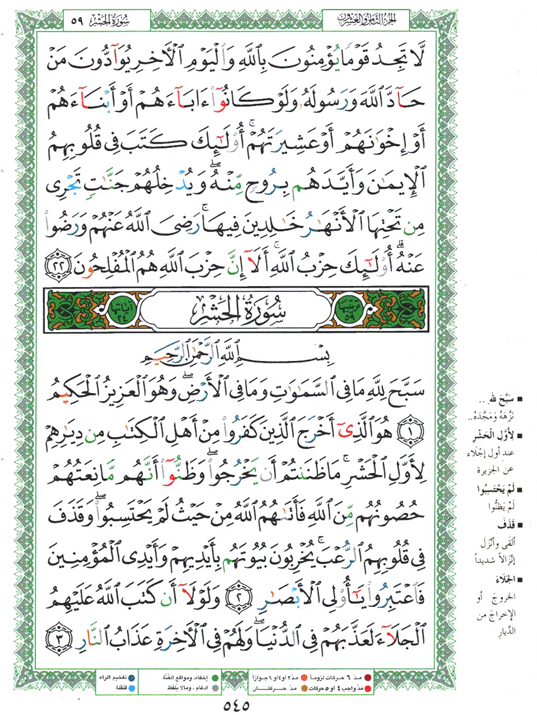 سُورَةُ الحَشْرِ ٥٩
الجزء الثامن والعشرون
لَّا تَجِدُ قَوْمًا يُؤْمِنُونَ بِٱللَّهِ وَٱلْيَوْمِ ٱلْأَخِرِ يُوَآدُّونَ مَنْ
حَآدَّ ٱللَّهَ وَرَسُولَهُۥ وَلَوْ كَانُوٓا۟ ءَابَآءَهُمْ أَوْ أَبْنَآءَهُمْ
أَوْ إِخْوَٰنَهُمْ أَوْ عَشِيرَتَهُمْ ۚ أُو۟لَٰٓئِكَ كَتَبَ فِى قُلُوبِهِمُ
ٱلْإِيمَٰنَ وَأَيَّدَهُم بِرُوحٍ مِّنْهُ ۖ وَيُدْخِلُهُمْ جَنَّٰتٍ تَجْرِى
مِن تَحْتِهَا ٱلْأَنْهَٰرُ خَٰلِدِينَ فِيهَا ۚ رَضِىَ ٱللَّهُ عَنْهُمْ وَرَضُوا۟
عَنْهُ ۚ أُو۟لَٰٓئِكَ حِزْبُ ٱللَّهِ ۚ أَلَآ إِنَّ حِزْبَ ٱللَّهِ هُمُ ٱلْمُفْلِحُونَ ٢٢
سُورَةُ الحَشْرِ
بِسْمِ ٱللَّهِ ٱلرَّحْمَٰنِ ٱلرَّحِيمِ
سَبَّحَ لِلَّهِ مَا فِى ٱلسَّمَٰوَٰتِ وَمَا فِى ٱلْأَرْضِ ۖ وَهُوَ ٱلْعَزِيزُ ٱلْحَكِيمُ
١ هُوَ ٱلَّذِىٓ أَخْرَجَ ٱلَّذِينَ كَفَرُوا۟ مِنْ أَهْلِ ٱلْكِتَٰبِ مِن دِيَٰرِهِمْ
لِأَوَّلِ ٱلْحَشْرِ ۚ مَا ظَنَنتُمْ أَن يَخْرُجُوا۟ ۖ وَظَنُّوٓا۟ أَنَّهُم مَّانِعَتُهُمْ
حُصُونُهُم مِّنَ ٱللَّهِ فَأَتَىٰهُمُ ٱللَّهُ مِنْ حَيْثُ لَمْ يَحْتَسِبُوا۟ ۖ وَقَذَفَ
فِى قُلُوبِهِمُ ٱلرُّعْبَ ۚ يُخْرِبُونَ بُيُوتَهُم بِأَيْدِيهِمْ وَأَيْدِى ٱلْمُؤْمِنِينَ
فَٱعْتَبِرُوا۟ يَٰٓأُو۟لِى ٱلْأَبْصَٰرِ ٢ وَلَوْلَآ أَن كَتَبَ ٱللَّهُ عَلَيْهِمُ
ٱلْجَلَآءَ لَعَذَّبَهُمْ فِى ٱلدُّنْيَا ۖ وَلَهُمْ فِى ٱلْأَخِرَةِ عَذَابُ ٱلنَّارِ ٣
سَبَّحَ لله ..
نَزَّهَهُ وَمَجَّدَهُ..
لِأَوَّلِ الحَشْرِ
عند أول إجْلاء
عن الجزيرة
لَمْ يَحْتَسِبُوا
لَمْ يَظُنُّوا
قَذَفَ
ألقى وأنْزَلَ
إنْزالاً شديداً
الجَلَاءَ
الخروجَ أو
الإخراجَ من
الدِّيارِ
مدّ ٦ حركات لزوماً
مدّ ٢ أو ٤ أو ٦ جوازاً
إخفاء، ومواقع الغُنَّة
تفخيم الراء
مدّ واجب ٤ أو ٥ حركات
مدّ حركتان
ادغام، وما لا يُلفَظ
قلقلة
٥٤٥